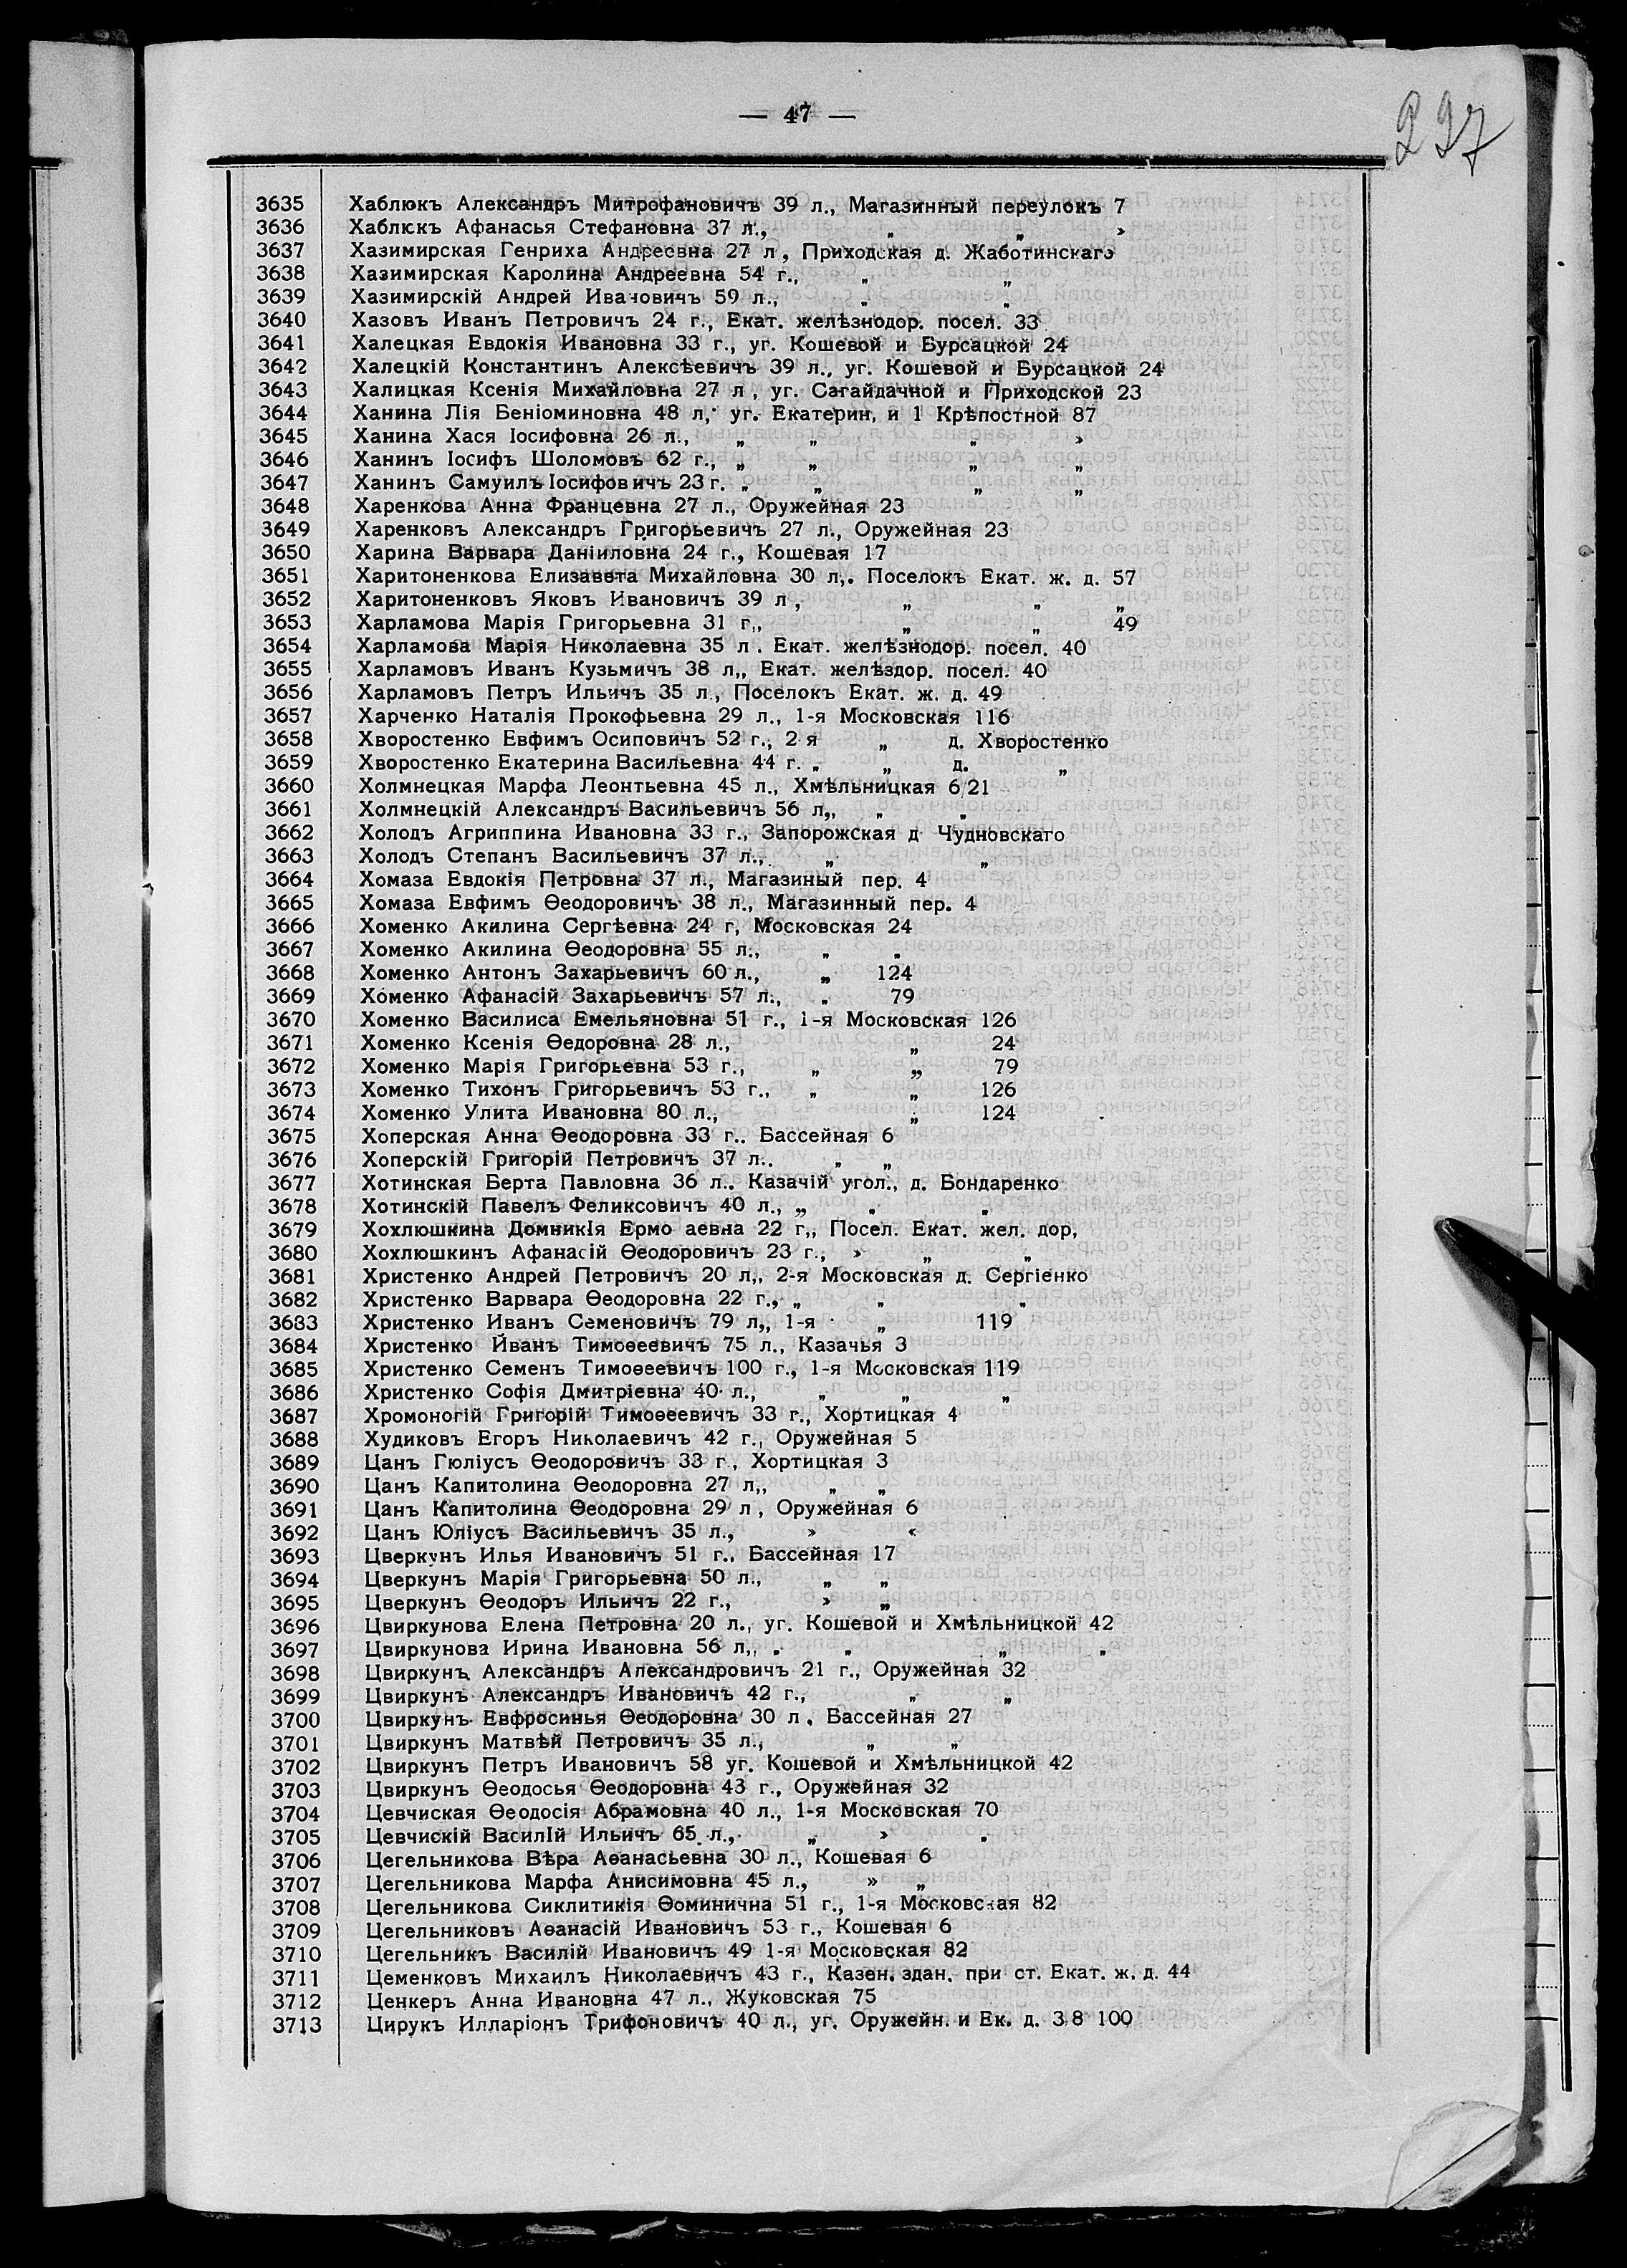 — 47 —
237
3635 Хаблюкъ Александръ Митрофановичъ 39 л., Магазинный переулокъ 7
3636 Хаблюкъ Афанасья Стефановна 37 л., „ „ »
3637 Хазимирская Генриха Андреевна 27 л , Приходская д. Жаботинскаго
3638 Хазимирская Каролина Андреевна 54 г., „ „
3639 Хазимирскій Андрей Ивановичъ 59 л., „ „
3640 Хазовъ Иванъ Петровичъ 24 г., Екат. желѣзнодор. посел. 33
3641 Халецкая Евдокія Ивановна 33 г., уг. Кошевой и Бурсацкой 24
3642 Халецкій Константинъ Алексѣевичъ 39 л., уг. Кошевой и Бурсацкой 24
3643 Халицкая Ксенія Михайловна 27 л , уг. Сагайдачной и Приходской 23
3644 Ханина Лія Беніоминовна 48 л, уг. Екатерин, и 1 Крѣпостной 87
3645 Ханина Хася Іосифовна 26 л., „ „ „ »
3646 Ханинъ Іосифъ Шоломовъ 62 г., „ „ „ „
3647 Ханинъ Самуилъ Іосифовичъ 23 г. „ „ „ „
3648 Харенкова Анна Францевна 27 л., Оружейная 23
3649 Харенковъ Александръ Григорьевичъ 27 л., Оружейная 23
3650 Харина Варвара Даніиловна 24 г., Кошевая 17
3651 Харитоненкова Елизавета Михайловна 30 л,. Поселокъ Екат. ж. д. 57
3652 Харитоненковъ Яковъ Ивановичъ 39 л , „ „ „
3653 Харламова Марія Григорьевна 31 г,, „ „ 49
3654 Харламова Марія Николаевна 35 л . Екат. желѣзнодор. посел. 40
3655 Харламовъ Иванъ Кузьмичъ 38 л,, Екат. желѣздор. посел. 40
3656 Харламовъ Петръ Ильичъ 35 л., Поселокъ Екат. ж. д. 49
3657 Харченко Наталія Прокофьевна 29 л., 1-я Московская 116
3658 Хворостенко Евфимъ Осиповичъ 52 г., 2 я „ д. Хворостенко
3659 Хворостенко Екатерина Васильевна 44 г. „ „ д. „
3660 Холмнецкая Марфа Леонтьевна 45 л., Хмѣльницкая 6/21
3661 Холмнецкій Александръ Васильевичъ 56 л,, „ „
3662 Холодъ Агриппина Ивановна 33 г., Запорожская д Чудновскаго
3663 Холодъ Степанъ Васильевичъ 37 л., „ „
3664 Хомаза Евдокія Петровна 37 л., Магазиный пер. 4
3665 Хомаза Евфимъ Ѳеодоровичъ 38 л., Магазинный пер. 4
3666 Хоменко Акилина Сергѣевна 24 г, Московская 24
3667 Хоменко Акилина Ѳеодоровна 55 л., „ „
3668 Хоменко Антонъ Захарьевичъ 60 л., „ 124
3669 Хоменко Афанасій Захарьевичъ 57 л., „ 79
3670 Хоменко Василиса Емельяновна 51 г., 1-я Московская 126
3671 Хоменко Ксенія Ѳедоровна 28 л., „ 24
3672 Хоменко Марія Григорьевна 53 г., „ „ 79
3673 Хоменко Тихонъ Григорьевичъ 53 г., „ „ 126
3674 Хоменко Улита Ивановна 80 л., „ 124
3675 Хоперская Анна Ѳеодоровна 33 г.. Бассейная 6
3676 Хоперскій Григорій Петровичъ 37 л.. „ „
3677 Хотинская Берта Павловна 36 л.. Казачій угол., д. Бондаренко
3678 Хотинскій Павелъ Феликсовичъ 40 л., „ „ „
3679 Хохлюшкина Домникія Ермо аевна 22 г,, Посел. Екат. жел. дор,
3680 Хохлюшкинъ Афанасій Ѳеодоровичъ 23 г., » „ „
3681 Христенко Андрей Петровичъ 20 л,, 2-я Московская д. Сергіенко
3682 Христенко Варвара Ѳеодоровна 22 г., „ „ „
3683 Христенко Иванъ Семеновичъ 79 л,, 1-я „ 119
3684 Христенко Иванъ Тимоѳеевичъ 75 л., Казачья 3
3685 Христенко Семенъ Тимоѳеевичъ 100 г., 1-я Московская 119
3686 Христенко Софія Дмитріевна 40 л., „ „ „
3687 Хромоногій Григорій Тимоѳеевичъ 33 г., Хортицкая 4
3688 Худиковъ Егоръ Николаевичъ 42 г., Оружейная 5
3689 Цанъ Гюліусъ Ѳеодоровичъ 33 г , Хортицкая 3
3690 Цанъ Капитолина Ѳеодоровна 27 л,, „ „
3691 Цанъ Капитолина Ѳеодоровна 29 л , Оружейная 6
3692 Цанъ Юліусъ Васильевичъ 35 л., » «
3693 Цверкунъ Илья Ивановичъ 51 г., Бассейная 17
3694 Цверкунъ Марія Григорьевна 50 л., „ „
3695 Цверкунъ Ѳеодоръ Ильичъ 22 г., » „
3696 Цвиркунова Елена Петровна 20 л., уг. Кошевой и Хмѣльницкой 42
3697 Цвиркунова Ирина Ивановна 56 л,, „ „ „ „
3698 Цвиркунъ Александръ Александровичъ 21 г., Оружейная 32
3699 Цвиркунъ Александръ Ивановичъ 42 г., „ „
3700 Цвиркунъ Евфросинья Ѳеодоровна 30 л , Бассейная 27
3701 Цвиркунъ Матвѣй Петровичъ 35 л., „ „
3702 Цвиркунъ Петръ Ивановичъ 58 уг. Кошевой и Хмѣльницкой 42
3703 Цвиркунъ Ѳеодосья Ѳеодоровна 43 г., Оружейная 32
3704 Цевчиская Ѳеодосія Абрамовна 40 л., 1-я Московская 70
3705 Цевчискій Василій Ильичъ 65 л., „ » „
3706 Цегельникова Вѣра Аѳанасьевна 30 л., Кошевая 6
3707 Цегельникова Марфа Анисимовна 45 л., » „
3708 Цегельникова Сиклитикія Ѳоминична 51 г., 1-я Московская 82
3709 Цегельниковъ Аѳанасій Ивановичъ 53 г., Кошевая 6
3710 Цегельникъ Василій Ивановичъ 49 1-я Московская 82
3711 Цеменковъ Михаилъ Николаевичъ 43 г., Казен. здан. при ст. Екат. ж. д. 44
3712 Ценкеръ Анна Ивановна 47 л., Жуковская 75
3713 Цирукъ Илларіонъ Трифоновичъ 40 л., уг. Оружейн. и Ек. д. 38 100